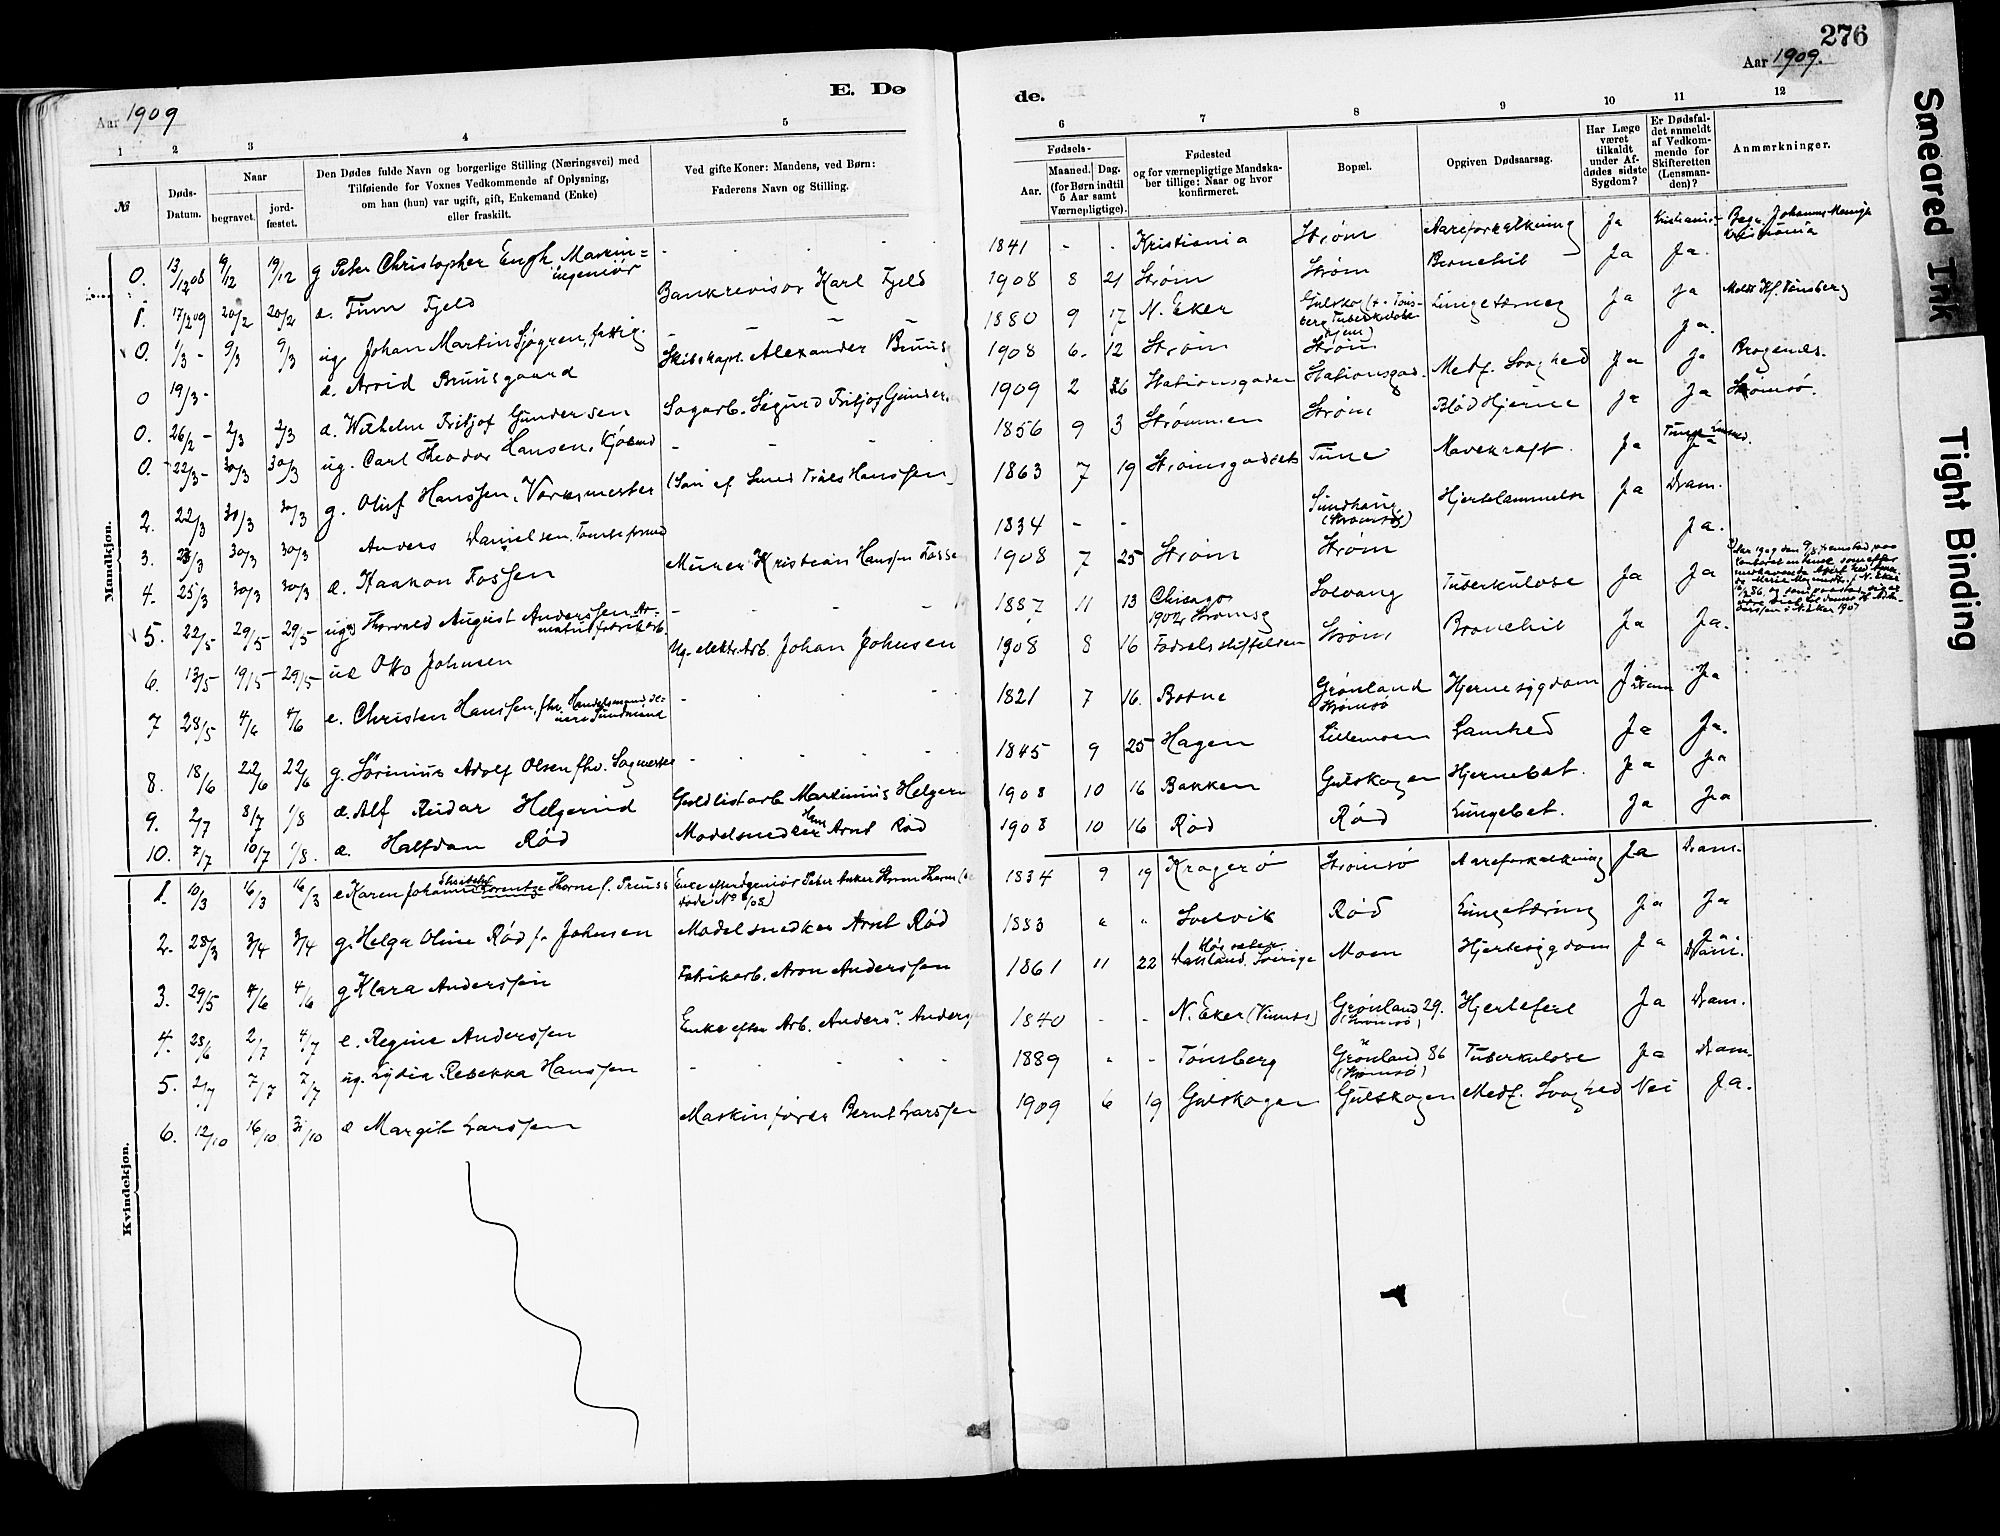 276
Aar 1909
Aar 1909.
E. Dø
de.
1 2 3 4 5 6 7 8 9 10 11 12
№
Døds-Datum.
Naar
begravet.
jord-fæstet.
Den Dødes fulde Navn og borgerlige Stilling (Næringsvei) med
Tilføiende for Voxnes Vedkommende af Oplysning,
om han (hun) var ugift, gift, Enkemand (Enke)
eller fraskilt.
Ved gifte Koner: Mandens, ved Børn:
Faderens Navn og Stilling.
Fødsels-
Aar.
Maaned. Dag.
(for Børn indtil
5 Aar samt
Værnepligtige).
Fødested
og for værnepligtige Mandska-
ber tillige: Naar og hvor
konfirmeret.
Bopæl.
Opgiven Dødsaarsag.
Har Læge
været
tilkaldt
under Af-
dødes sidste
Sygdom?
Er Dødsfal-
det anmeldt
af Vedkom-
mende for
Skifteretten
(Lensman-
den)?
Anmærkninger.
Mandkjøn.
0. 13/12 08 9/12 19/12 g Peter Christopher Engh Maskin=ingeniør - - - 1841 - - Kristiania Strøm Aareforkalkning Ja Kristiania
1. 17/2 09 20/2 20/2 æ. Finn Fjeld Bankrevisor Karl Fjeld 1908 8 21 Strøm Strøm Bronchit Ja Ja.
0. 1/3 - 9/3 9/3 ug. Johan Martin Sjøgren, fattig. - - - 1880 9 17 N. Eker Gulskog Lungetæring Ja Ja Tønsberg
0 19/3 - æ. Arvid Bruusgaard Skibskapt. Alexander Bruus 1908 6. 12 Strøm Strøm Ja.
0. 26/2 - 2/3 2/3 æ. Wilhelm Fritjof Gundersen Sagarb. Sigurd Fritjof Gunder 1909 2 26 Stationsgaden Stationsgad. Medf. Svaghed Ja Ja Bragenæs.
0. 22/3 - 30/3 30/3 ug. Carl Theodor Hansen, - - - 1856 9 3 Strømmen Strøm Blød Hjerne Ja Ja Strømsø.
2. 22/3 30/3 30/3 g. Oluf Hanssen, Værksmester 1863 7 19 Strømsgodset Tune Mavekræft. Ja
3. 23/3 30/3 30/3 Anders Danielsen, 1834 - - Sundhaug (Strømsø) Hjertelammelse Ja Dram.
4. 25/3 30/3 30/3 æ. Haakon Fossen Murer Kristian Hansen Fosse 1908 7 25 Strøm Strøm Ja.
5. 22/5 29/5 29/5 ug. Thorvald August Anderssen - - - 1887 11 13 Chicago 1902 Strømsg Solvang Tuberkulose Ja Ja
6. 13/5 19/5 29/5 uæ Otto Johnsen Ug. elektr. Arb. Johan Johnsen 1908 8 16 Fødselsstiftelsen Strøm Bronchit Ja Ja.
7 28/5 4/6 4/6 e. Christen Hanssen, fhv. Handelsmand, - - - 1821 7 16. Botne Grønland Strømsø Hjernesygdom Ja Ja
8. 18/6 22/6 22/6 g. Sørinius Adolf Olsen fhv. Sagmester - - - 1845 9 25 Hagen Lillemoen Lamhed Ja Ja.
9. 2/7 8/7 1/8 æ. Alf Reidar Helgerud Guldlistarb. Markinius Helgeru 1908 10 16 Bakken Gulskogen Hjernebet. Ja Ja
10. 7/7 10/7 1/8. æ. Halfdan Rød Modelsnedker Arnt Rød 1908 10 16 Rød Rød Lungebet. Ja Ja
Kvindekjøn.
1. 10/3 16/3 16/3 e Karen Johanne Lorentze Horne f. Preuss Enke efter Peter Anker 1834 9 19 Kragerø Strømsø Aareforkalkning Ja Dram.
2. 28/3 3/4 3/4 g. Helga Oline Rød f. Johnsen Modelsnedker Arnt Rød 1883 " " Svelvik Rød Lungetæring Ja Ja
3. 29/5 4/6 4/6 g Klara Anderssen Fabrikarb. Aron Anderssen 1861 11 22 Dalsland, Sverige Moen Hjertesygdom Ja Dram.
4. 28/6 2/7 4/7 e. Regine Anderssen Enke efter Arb. Anders Anders 1840 - - N. Eker Grønland 29. (Strømsø) Hjertefeil Ja Dram.
5. 2/7 7/7 7/7 ug. Lydia Rebekka Hanssen - - - 1889 " - Tønsberg Grønland 86 (Strømsø) Tuberkulose Ja Dram.
6. 12/10 16/10 31/10 æ Margit Larssen Maskinfører Bernt Larssen 1909 6 19 Gulskogen Gulskogen Medf. Svaghed Nei Ja.
Smeared Ink
Tight Binding